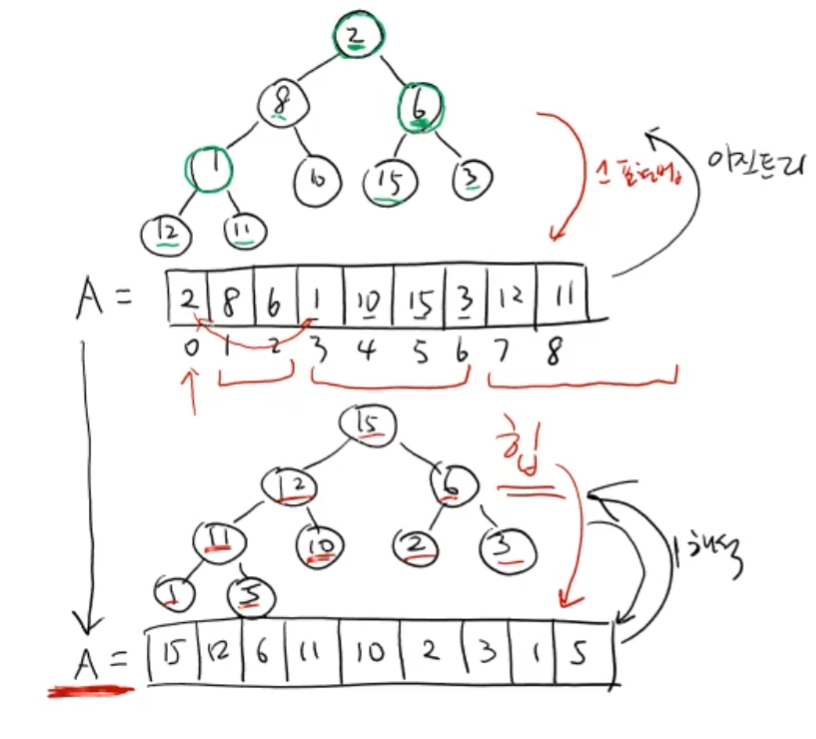 2
8 6
1 10 15 3
12 11
이진트리
A = 2 8 6 1 10 15 3 12 11
0 1 2 3 4 5 6 7 8
15
힙
12 6
11 10 2 3
1 5
A = 15 12 6 11 10 2 3 1 5